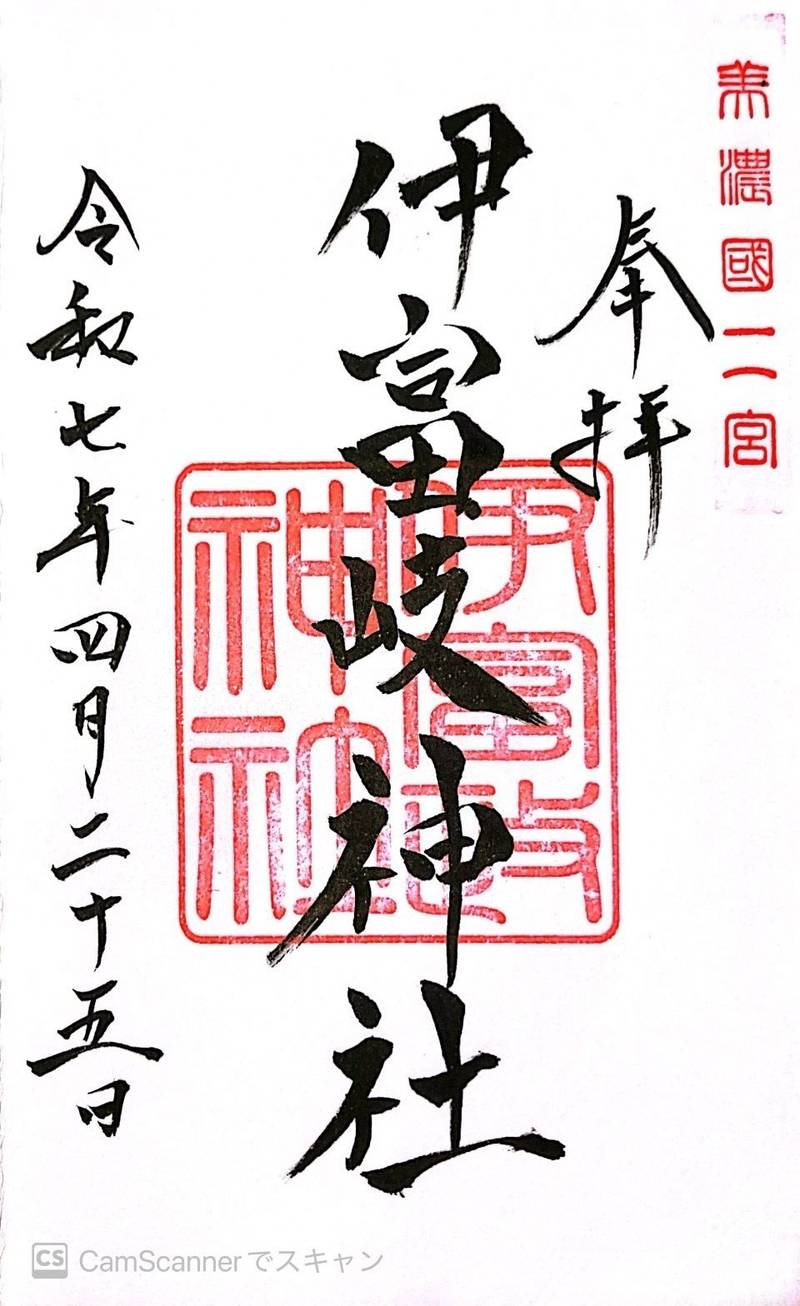 美濃國二宮
奉拝
伊富岐神社
伊富岐神社
令和七年四月二十五日
CS CamScannerでスキャン